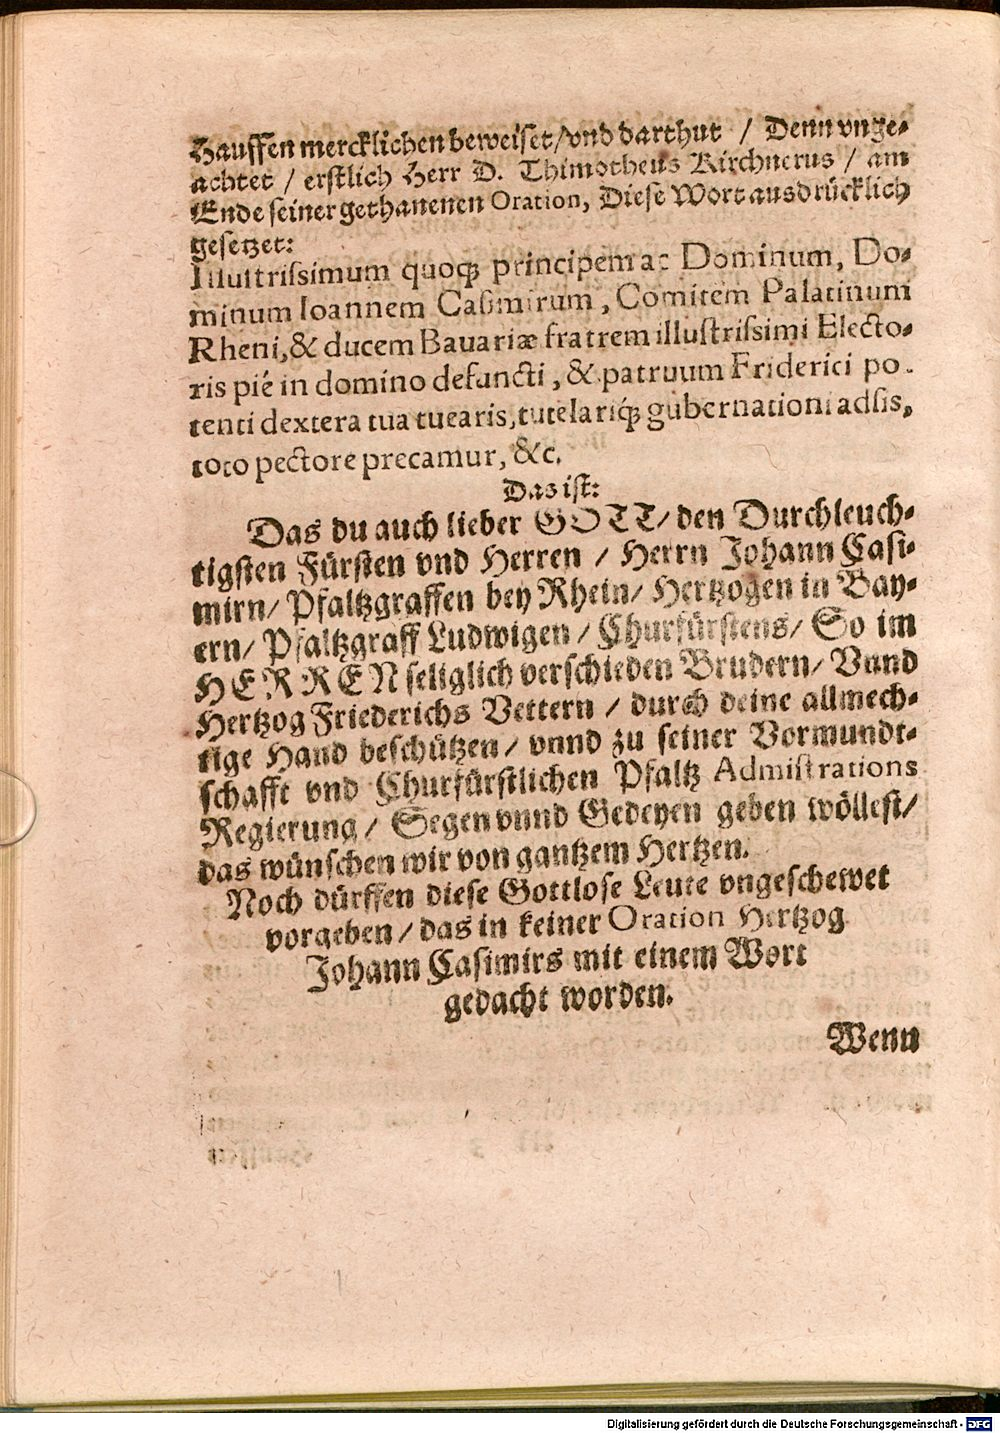 Hauffen mercklichen beweiset/vnd darthut / Denn vnge-
achtet / erstlich Herr D. Thimotheus Kirchnerus / am
Ende seiner gethanenen Oration, Diese Wort ausdrücklich
gesetzet:
Illustrissimum quoq́; principem ac Dominum, Do-
minum Ioannem Casimirum, Comitem Palatinum
Rheni, & ducem Bauariæ fratrem illustrissimi Electo-
ris piè in domino defuncti, & patruum Friderici po-
tenti dextera tua tuearis, tutelariq́; gubernationi adsis,
toto pectore precamur, &c.
Das ist:
Das du auch lieber GOTT/ den Durchleuch-
tigsten Fürsten vnd Herren / Herrn Johann Casi-
mirn/ Pfaltzgraffen bey Rhein/ Hertzogen in Bay-
ern/ Pfaltzgraff Ludwigen / Churfürstens/ So im
HERREN seliglich verschieden Brudern/ Vnnd
Hertzog Friederichs Vettern / durch deine allmech-
tige Hand beschützen/ vnnd zu seiner Vormundt-
schafft vnd Churfürstlichen Pfaltz Admistrations
Regierung/ Segen vnnd Gedeyen geben wöllest/
das wünschen wir von gantzem Hertzen.
Noch dürffen diese Gottlose Leute vngeschewet
vorgeben/ das in keiner Oration Hertzog
Johann Casimirs mit einem Wort
gedacht worden.
Wenn
Digitalisierung gefördert durch die Deutsche Forschungsgemeinschaft - DFG